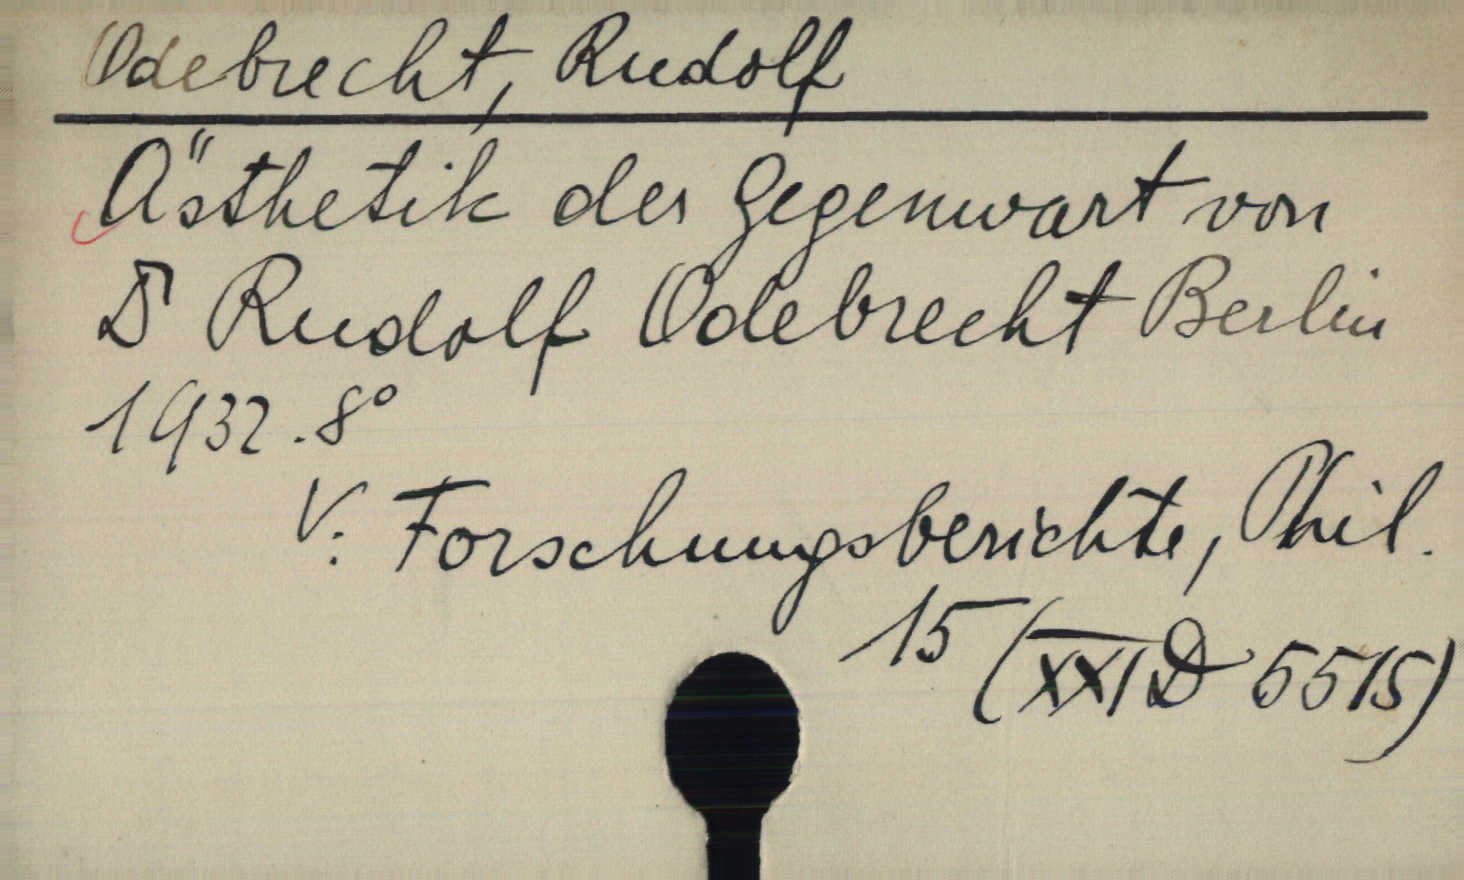 Odebrecht, Rudolf
Ästhetik der Gegenwart von
Dr Rudolf Odebrecht Berlin
1932. 8°
V: Forschungsberichte, Phil.
15 (XXI D 5515)